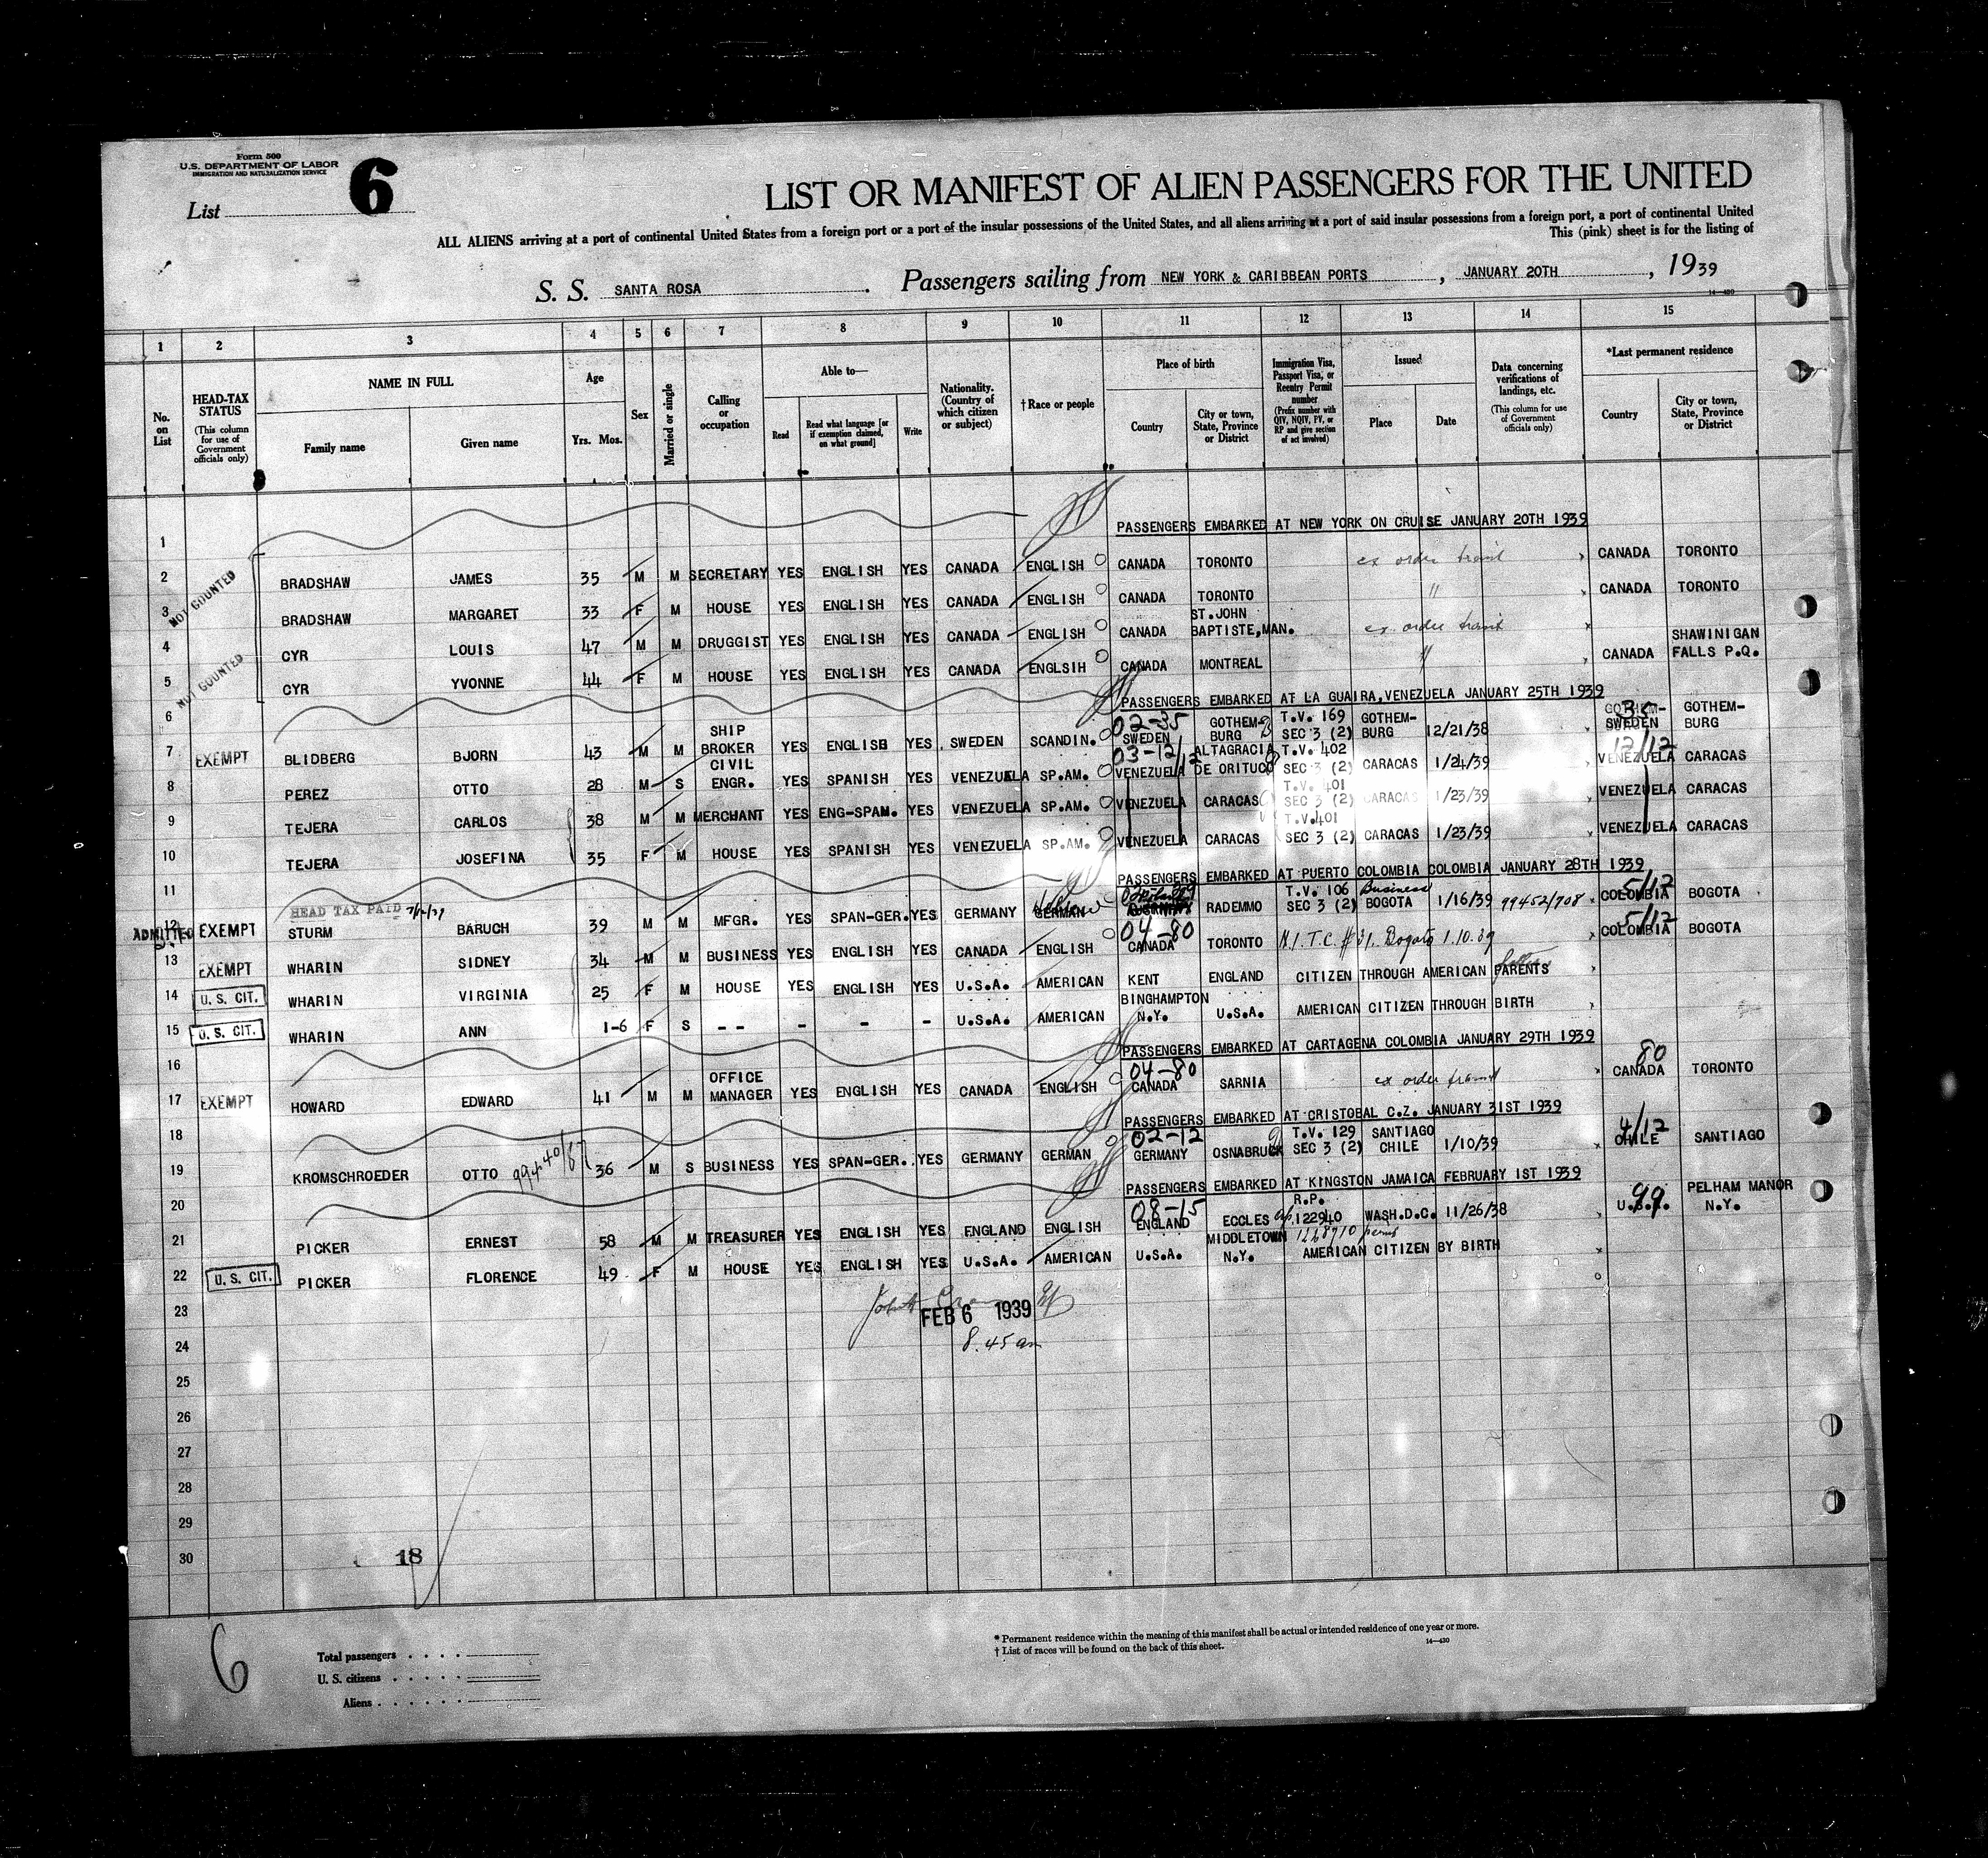 Form 500
U.S. DEPARTMENT OF LABOR
IMMIGRATION AND NATURALIZATION SERVICE
List 6
LIST OR MANIFEST OF ALIEN PASSENGERS FOR THE UNITED
ALL ALIENS arriving at a port of continental United States from a foreign port or a port of the insular possessions of the United States, and all aliens arriving at a port of said insular possessions from a foreign port, a port of continental United
This (pink) sheet is for the listing of
S. S. SANTA ROSA. Passengers sailing from NEW YORK & CARIBBEAN PORTS, JANUARY 20TH, 1939
14—430
1 2 3 4 5 6 7 8 9 10 11 12 13 14 15
No. on List
HEAD-TAX STATUS (This column for use of Government officials only)
NAME IN FULL
Family name
Given name
Age
Yrs. Mos.
Sex
Married or single
Calling or occupation
Able to—
Read
Read what language [or if exemption claimed, on what ground]
Write
Nationality. (Country of which citizen or subject)
† Race or people
Place of birth
Country
City or town, State, Province or District
Immigration Visa, Passport Visa, or Reentry Permit number (Prefix number with QIV, NQIV, PV, or RP and give section of act involved)
Issued
Place
Date
Data concerning verifications of landings, etc. (This column for use of Government officials only)
*Last permanent residence
Country
City or town, State, Province or District
1 PASSENGERS EMBARKED AT NEW YORK ON CRUISE JANUARY 20TH 1939
NOT COUNTED
2 BRADSHAW JAMES 35 M M SECRETARY YES ENGLISH YES CANADA ENGLISH CANADA TORONTO ex order transit CANADA TORONTO
3 BRADSHAW MARGARET 33 F M HOUSE YES ENGLISH YES CANADA ENGLISH CANADA TORONTO " CANADA TORONTO
4 CYR LOUIS 47 M M DRUGGIST YES ENGLISH YES CANADA ENGLISH CANADA ST.JOHN BAPTISTE,MAN. ex order transit
NOT COUNTED
5 CYR YVONNE 44 F M HOUSE YES ENGLISH YES CANADA ENGLSIH CANADA MONTREAL " CANADA SHAWINIGAN FALLS P.Q.
6 PASSENGERS EMBARKED AT LA GUAIRA,VENEZUELA JANUARY 25TH 1939
7 EXEMPT BLIDBERG BJORN 43 M M SHIP BROKER YES ENGLISH YES SWEDEN SCANDIN. 02-35 SWEDEN GOTHEM-BURG T.V. 169 SEC 3 (2) GOTHEM-BURG 12/21/38 SWEDEN GOTHEM-BURG
8 PEREZ OTTO 28 M S CIVIL ENGR. YES SPANISH YES VENEZUELA SP.AM. 03-12/12 VENEZUELA ALTAGRACIA DE ORITUCO T.V. 402 SEC 3 (2) CARACAS 1/24/39 12/12 VENEZUELA CARACAS
9 TEJERA CARLOS 38 M M MERCHANT YES ENG-SPAM. YES VENEZUELA SP.AM. VENEZUELA CARACAS T.V. 401 SEC 3 (2) CARACAS 1/23/39 VENEZUELA CARACAS
10 TEJERA JOSEFINA 35 F M HOUSE YES SPANISH YES VENEZUELA SP.AM. VENEZUELA CARACAS T.V.401 SEC 3 (2) CARACAS 1/23/39 VENEZUELA CARACAS
11 PASSENGERS EMBARKED AT PUERTO COLOMBIA COLOMBIA JANUARY 28TH 1939
HEAD TAX PAID
12 ADMITTED EXEMPT STURM BARUCH 39 M M MFGR. YES SPAN-GER. YES GERMANY Hebrew GERMAN RADEMMO T.V. 106 SEC 3 (2) Business BOGOTA 1/16/39 99452/708 5/12 COLOMBIA BOGOTA
13 EXEMPT WHARIN SIDNEY 34 M M BUSINESS YES ENGLISH YES CANADA ENGLISH 04-80 CANADA TORONTO N.I.T.C. #31. Bogota 1.10.39 5/12 COLOMBIA BOGOTA
14 U. S. CIT. WHARIN VIRGINIA 25 F M HOUSE YES ENGLISH YES U.S.A. AMERICAN KENT ENGLAND CITIZEN THROUGH AMERICAN PARENTS
15 U. S. CIT. WHARIN ANN 1-6 F S -- - - - U.S.A. AMERICAN BINGHAMPTON N.Y. U.S.A. AMERICAN CITIZEN THROUGH BIRTH
16 PASSENGERS EMBARKED AT CARTAGENA COLOMBIA JANUARY 29TH 1939
17 EXEMPT HOWARD EDWARD 41 M M OFFICE MANAGER YES ENGLISH YES CANADA ENGLISH 04-80 CANADA SARNIA ex order transit 80 CANADA TORONTO
18 PASSENGERS EMBARKED AT CRISTOBAL C.Z. JANUARY 31ST 1939
19 KROMSCHROEDER OTTO 99440/67 36 M S BUSINESS YES SPAN-GER. YES GERMANY GERMAN 02-12 GERMANY OSNABRUCK T.V. 129 SEC 3 (2) SANTIAGO CHILE 1/10/39 4/12 CHILE SANTIAGO
20 PASSENGERS EMBARKED AT KINGSTON JAMAICA FEBRUARY 1ST 1939
21 PICKER ERNEST 58 M M TREASURER YES ENGLISH YES ENGLAND ENGLISH 08-15 ENGLAND ECCLES R.P. 122940 1268710 permit WASH.D.C. 11/26/38 99 U.S.A. PELHAM MANOR N.Y.
22 U. S. CIT. PICKER FLORENCE 49 F M HOUSE YES ENGLISH YES U.S.A. AMERICAN U.S.A. MIDDLETOWN N.Y. AMERICAN CITIZEN BY BIRTH
23 FEB 6 1939
24 8.45 am
25
26
27
28
29
30 18
6
Total passengers
U. S. citizens
Aliens
* Permanent residence within the meaning of this manifest shall be actual or intended residence of one year or more.
† List of races will be found on the back of this sheet.
14—430